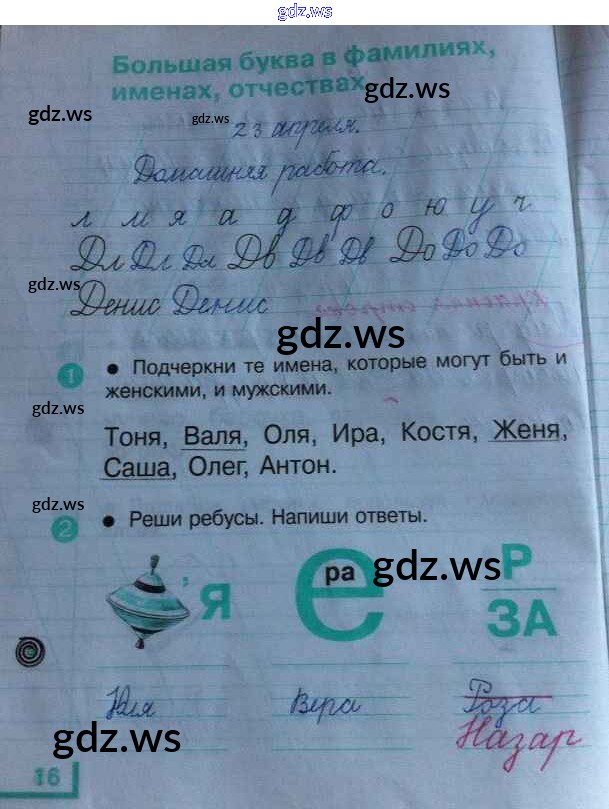 gdz.ws
Большая буква в фамилиях,
именах, отчествах
gdz.ws
gdz.ws
gdz.ws
23 апреля.
Домашняя работа.
л м я а д ф о ю у ч
Дл Дл Дл Дв Дв Дв До До До
gdz.ws
Денис Денис
gdz.ws
1 • Подчеркни те имена, которые могут быть и
женскими, и мужскими.
gdz.ws
Тоня, Валя, Оля, Ира, Костя, Женя,
Саша, Олег, Антон.
gdz.ws
2 • Реши ребусы. Напиши ответы.
’я е ра Р
ЗА
gdz.ws
Юля Вера Роза
Назар
gdz.ws
16
gdz.ws